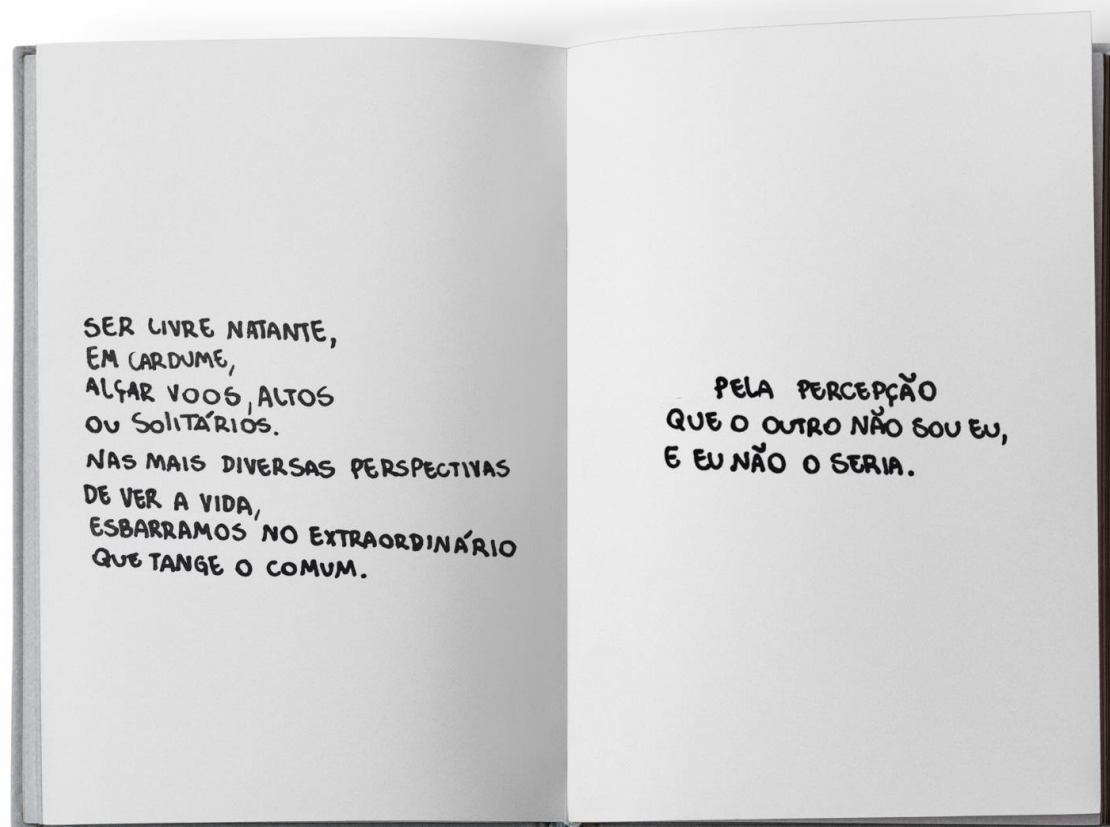 SER LIVRE NATANTE,
EM CARDUME,
ALÇAR VOOS, ALTOS
OU SOLITÁRIOS.
NAS MAIS DIVERSAS PERSPECTIVAS
DE VER A VIDA,
ESBARRAMOS NO EXTRAORDINÁRIO
QUE TANGE O COMUM.
PELA PERCEPÇÃO
QUE O OUTRO NÃO SOU EU,
E EU NÃO O SERIA.